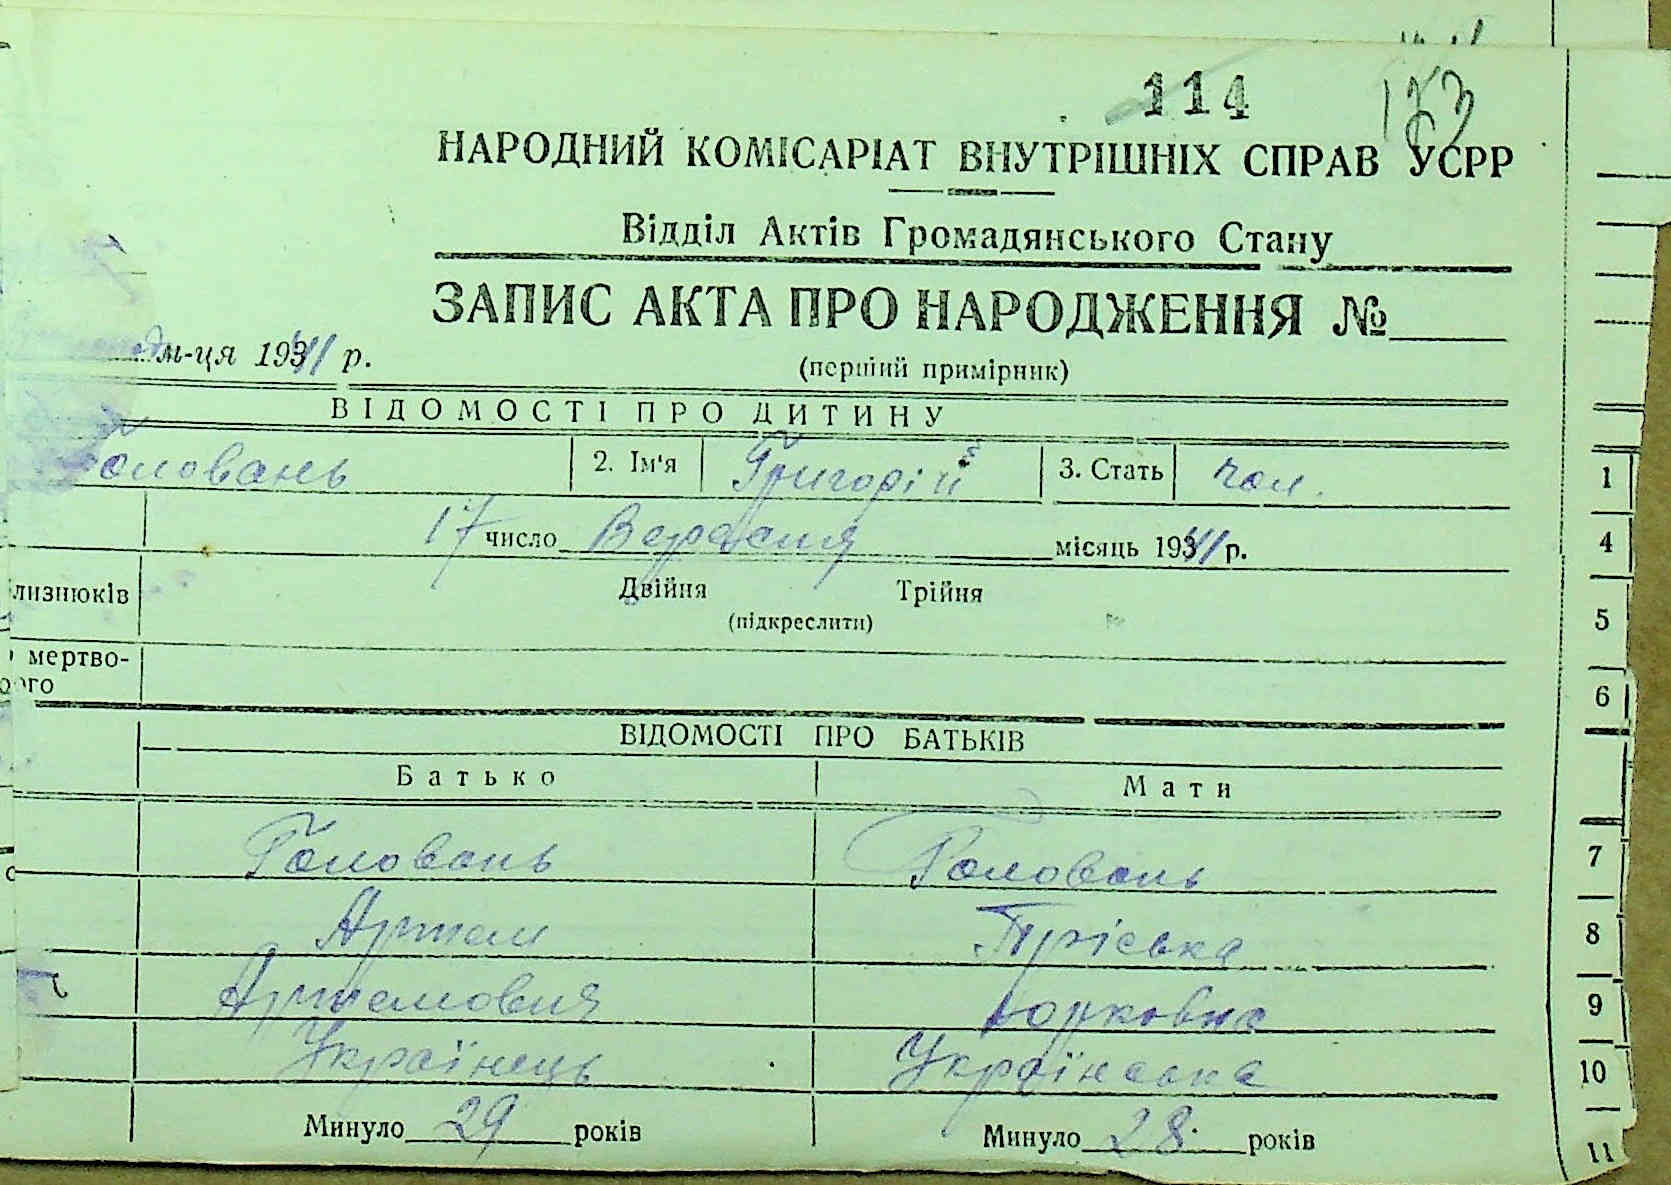 114 173
НАРОДНИЙ КОМІСАРІАТ ВНУТРІШНІХ СПРАВ УСРР
Відділ Актів Громадянського Стану
ЗАПИС АКТА ПРО НАРОДЖЕННЯ №
м-ця 1941 р.
(перший примірник)
ВІДОМОСТІ ПРО ДИТИНУ
Головань 2. Ім'я Григорій 3. Стать чол. 1
17 число Вересня місяць 1941 р. 4
лизнюків Двійня Трійня 5
(підкреслити)
мертво-
ого 6
ВІДОМОСТІ ПРО БАТЬКІВ
Батько Мати
Головань Головань 7
Артем Пріська 8
Артемович 9
Українець Українська 10
Минуло 29 років Минуло 28 років 11